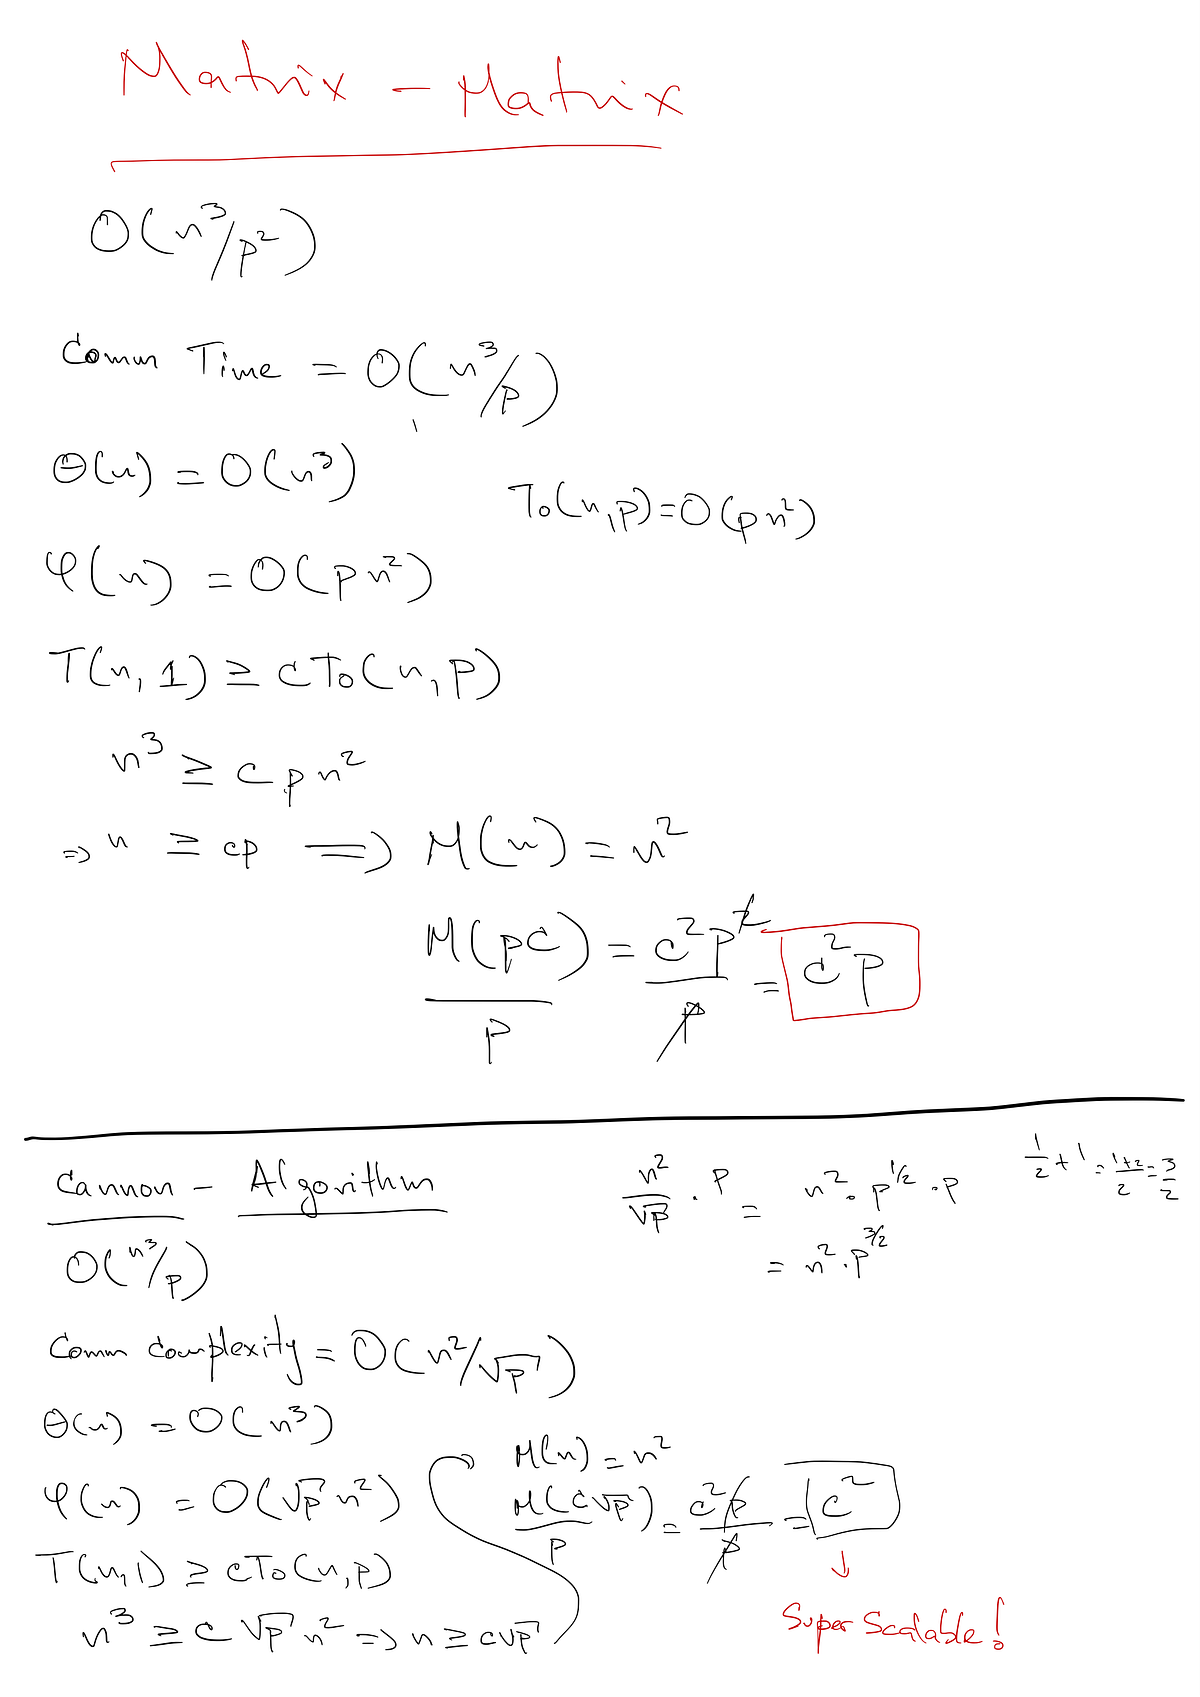 Matrix - Matrix
O(n³/p²)
Comm Time = O(n³/p)
Θ(n) = O(n³)
To(n,p)=O(pn²)
φ(n) = O(pn²)
T(n,1) ≥ cTo(n,p)
n³ ≥ cpn²
=> n ≥ cp => M(n) = n²
M(pc)/p = c²p²/p = c²p
Cannon - Algorithm
n²/√p · p = n² · p^1/2 · p
1/2 + 1 = 1+2/2 = 3/2
= n² · p^3/2
O(n³/p)
Comm complexity = O(n²/√p)
Θ(n) = O(n³)
M(n) = n²
φ(n) = O(√p n²)
M(c√p)/p = c²p/p = c²
T(n,1) ≥ cTo(n,p)
n³ ≥ c√p n² => n ≥ c√p
↓
Super Scalable!